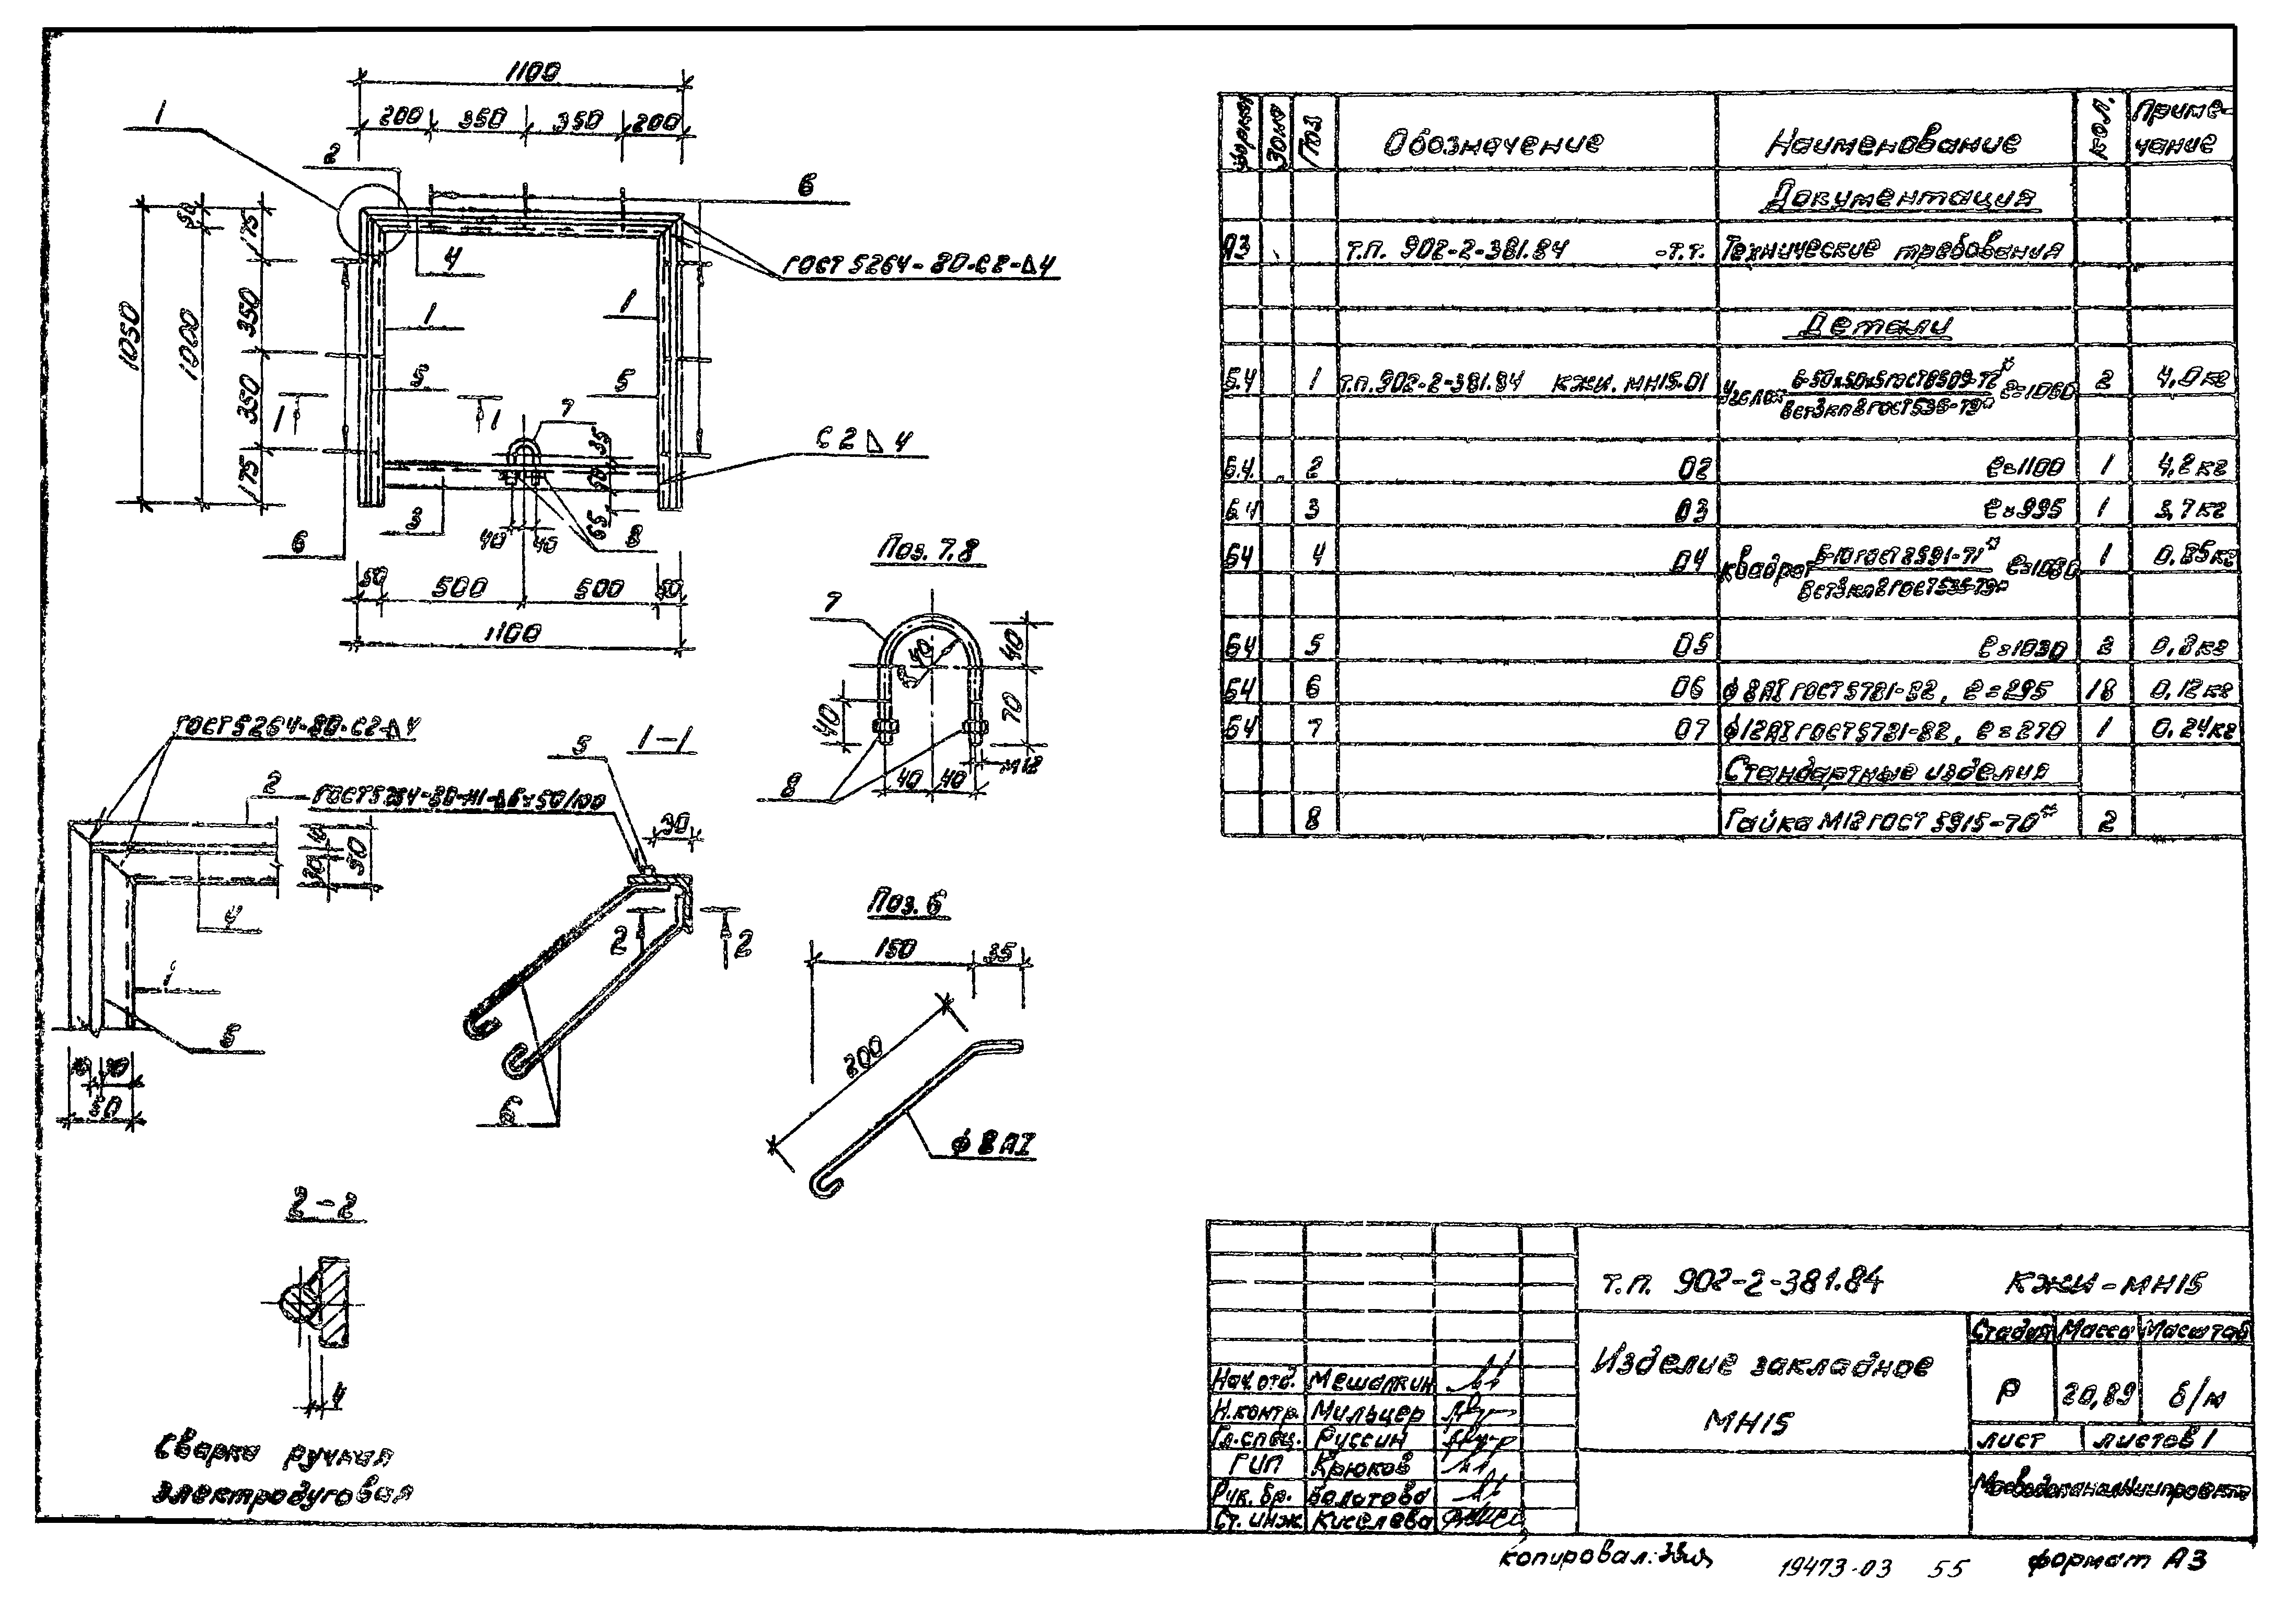 1100
200 350 350 200
1
2
6
50
175
4
ГОСТ 5264-80-С2-△4
1050
1000
350
1
1
5
5
7
350
1
1
35
С2△4
175
50
3
65
8
6
40 40
50 500 500 50
1100
Поз. 7,8
7
40
40
40
70
М12
8
40 40
ГОСТ 5264-80-С2-△4
5
1-1
2
30
50
30
4
1
5
10 40
50
2
2
6
Поз. 6
150 35
200
ф 8 АI
2-2
4
Сварка ручная
электродуговая
Формат Зона Поз Обозначение Наименование Кол. Приме-
чание
Документация
А3 Т.П. 902-2-381.84 -Т.Т. Технические требования
Детали
Б4 1 Т.П. 902-2-381.84 КЖИ.МН15.01 Уголок Б-50х50х5 ГОСТ 8509-72* 2 4,0кг
ВСт3кп2 ГОСТ 535-79*
Б.4. 2 02 ℓ=1100 1 4,2кг
Б4 3 03 ℓ=995 1 3,7кг
Б4 4 04 Квадрат Б-10 ГОСТ 2591-71* 1 0,85кг
ВСт3кп2 ГОСТ 535-79*
Б4 5 05 ℓ=1030 2 0,8кг
Б4 6 06 ф8АI ГОСТ 5781-82, ℓ=295 18 0,12кг
Б4 7 07 ф12АI ГОСТ 5781-82, ℓ=270 1 0.24кг
Стандартные изделия
8 Гайка М12 ГОСТ 5915-70* 2
Т.П. 902-2-381.84 КЖИ-МН15
Изделие закладное
МН15
Стадия Масса Масштаб
Р 20,89 б/м
Лист Листов 1
Мосводоканалниипроект
Нач.отд. Мешалкин
Н.контр. Мильцер
Гл.спец. Руссин
ГИП Крюков
Рук. бр. Болотова
Ст. инж. Киселева
Копировал:
19473-03 55
Формат А3